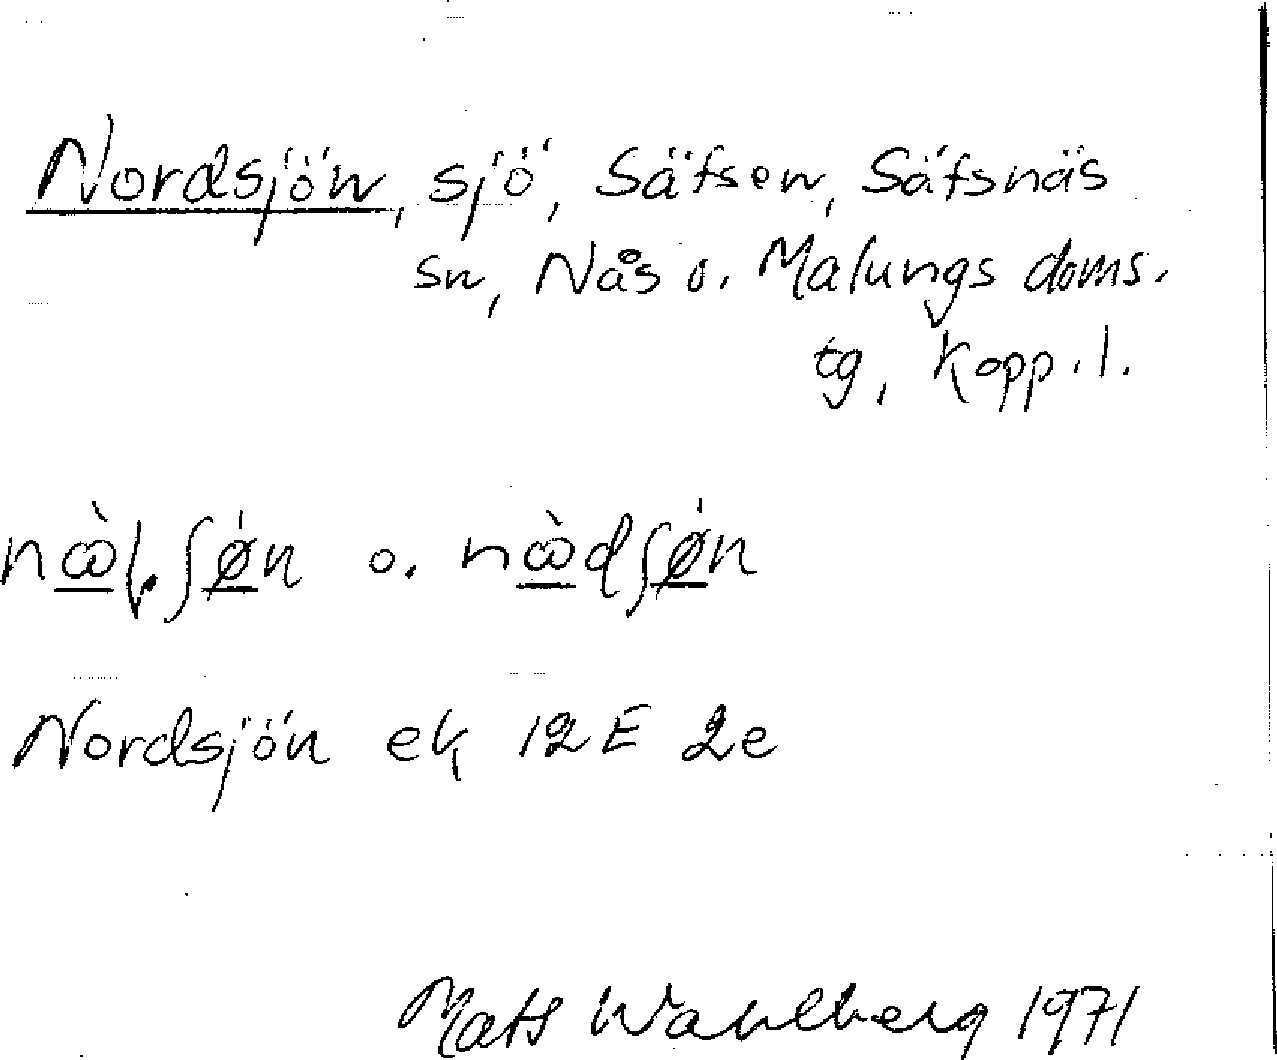 Nordsjön, sjö, Säfsen, Säfsnäs
sn, Nås o. Malungs doms.
tg, Kopp. l.
o.
Nordsjön ek 12E 2e
Mats Wahlberg 1971